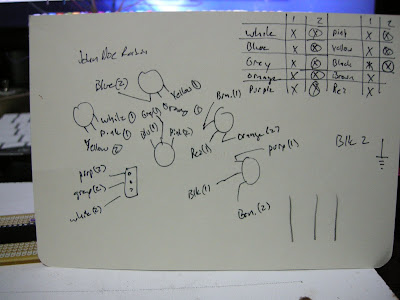 1 2 1 2
White X X Pink X X
Blue X X Yellow X X
Grey X X Black X X
Orange X X Brown X
Purple X X Red X
Blue(2)
Yellow(1)
White(1)
Pink(1)
Yellow(2)
Grey(1)
Orange(1)
Blu(1)
Pink(2)
Brn.(1)
Orange(2)
Red(1)
purp(1)
Blk(1)
Brn.(2)
Blk 2
purp(2)
white(2)